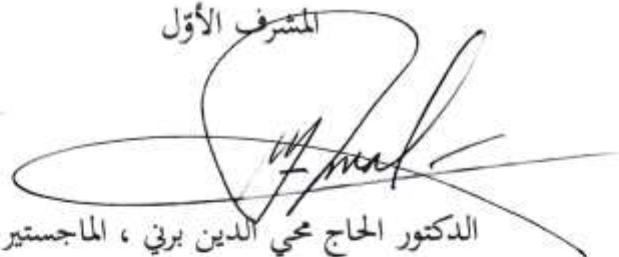 المشرف الأوّل
الدكتور الحاج محي الدين برني ، الماجستير